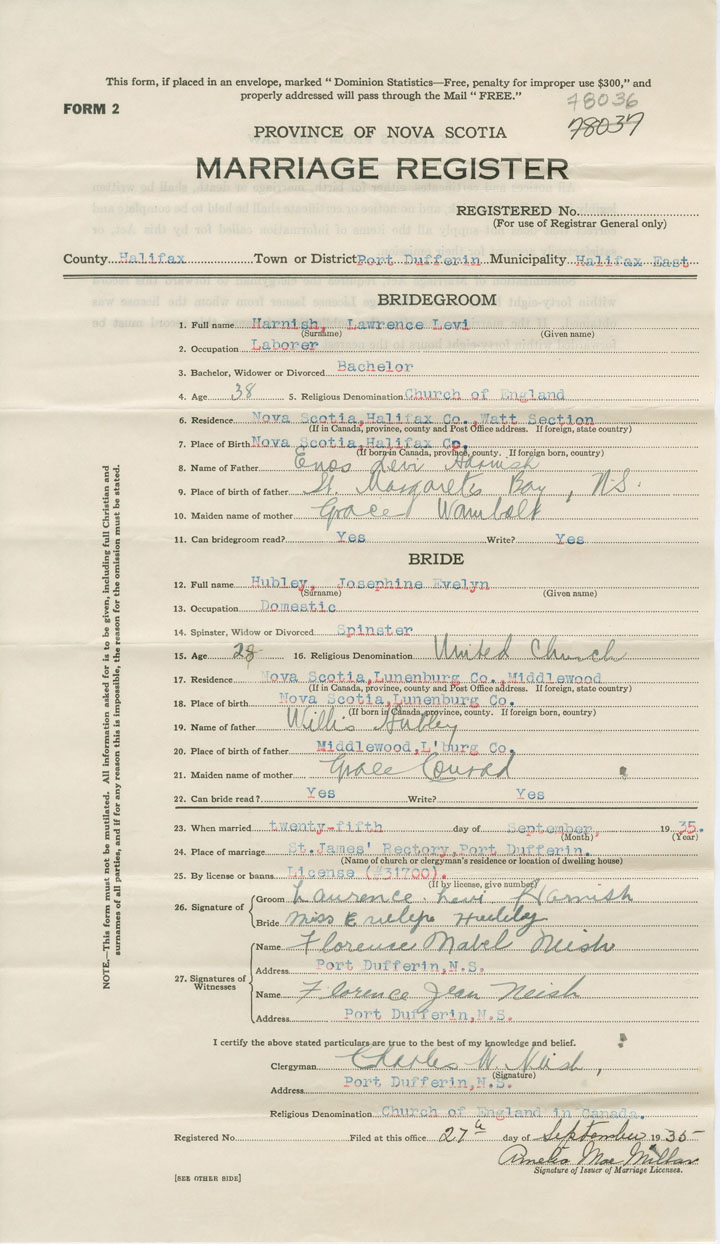 This form, if placed in an envelope, marked " Dominion Statistics—Free, penalty for improper use $300," and
properly addressed will pass through the Mail " FREE."
FORM 2
78036
78037
PROVINCE OF NOVA SCOTIA
MARRIAGE REGISTER
REGISTERED No.
(For use of Registrar General only)
County Halifax Town or District Port Dufferin Municipality Halifax East
BRIDEGROOM
1. Full name Harnish, Lawrence Levi
(Surname) (Given name)
2. Occupation Laborer
3. Bachelor, Widower or Divorced Bachelor
4. Age 38 5. Religious Denomination Church of England
6. Residence Nova Scotia, Halifax Co., Watt Section
(If in Canada, province, county and Post Office address. If foreign, state country)
7. Place of Birth Nova Scotia, Halifax Co.
(If born in Canada, province, county. If foreign born, country)
8. Name of Father Enos Levi Harnish
9. Place of birth of father St. Margarets Bay, N.S.
10. Maiden name of mother Grace Wambolt
11. Can bridegroom read? Yes Write? Yes
BRIDE
12. Full name Hubley, Josephine Evelyn
(Surname) (Given name)
13. Occupation Domestic
14. Spinster, Widow or Divorced Spinster
15. Age 28 16. Religious Denomination United Church
17. Residence Nova Scotia, Lunenburg Co., Middlewood
(If in Canada, province, county and Post Office address. If foreign, state country)
18. Place of birth Nova Scotia, Lunenburg Co.
(If born in Canada, province, county. If foreign born, country)
19. Name of father Willis Hubley
20. Place of birth of father Middlewood, L'burg Co.
21. Maiden name of mother Grace Conrad
22. Can bride read? Yes Write? Yes
23. When married twenty-fifth day of September, 1935.
(Month) (Year)
24. Place of marriage St. James' Rectory, Port Dufferin.
(Name of church or clergyman's residence or location of dwelling house)
25. By license or banns License (#31700).
(If by license, give number)
26. Signature of
Groom Laurence Levi Harnish
Bride Miss Hubley
27. Signatures of Witnesses
Name Florence Mabel Neish
Address Port Dufferin, N.S.
Name Florence Jean Neish
Address Port Dufferin, N.S.
I certify the above stated particulars are true to the best of my knowledge and belief.
Clergyman Charles W. Neish,
(Signature)
Address Port Dufferin, N.S.
Religious Denomination Church of England in Canada.
Registered No. Filed at this office 27th day of September 1935
Amelia Mae Millar
Signature of Issuer of Marriage Licenses.
[SEE OTHER SIDE]
NOTE.—This form must not be mutilated. All information asked for is to be given, including full Christian and
surnames of all parties, and if for any reason this is impossible, the reason for the omission must be stated.